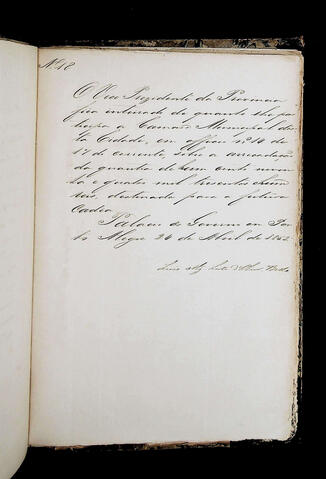 Nº 18
O Vice Prezidente da Provincia
fica inteirado de quanto lhe par
ticipa a Camara Municipal des
ta Cidade, em officio nº 14 de
17 do corrente, sobre a arrecadação
da quantia de cem conto noven
ta e quatro mil trezentos
reis, destinada para a futura
Cadea.
Palacio do Governo em Por
to Alegre 24 de Abril de 1862
Luis